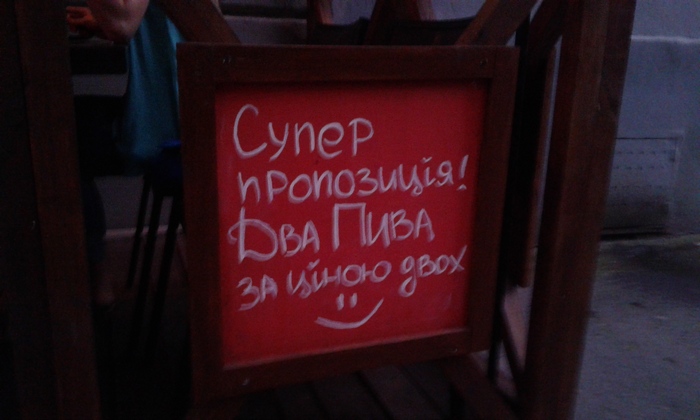 Супер
пропозиція!
Два Пива
за ціною двох